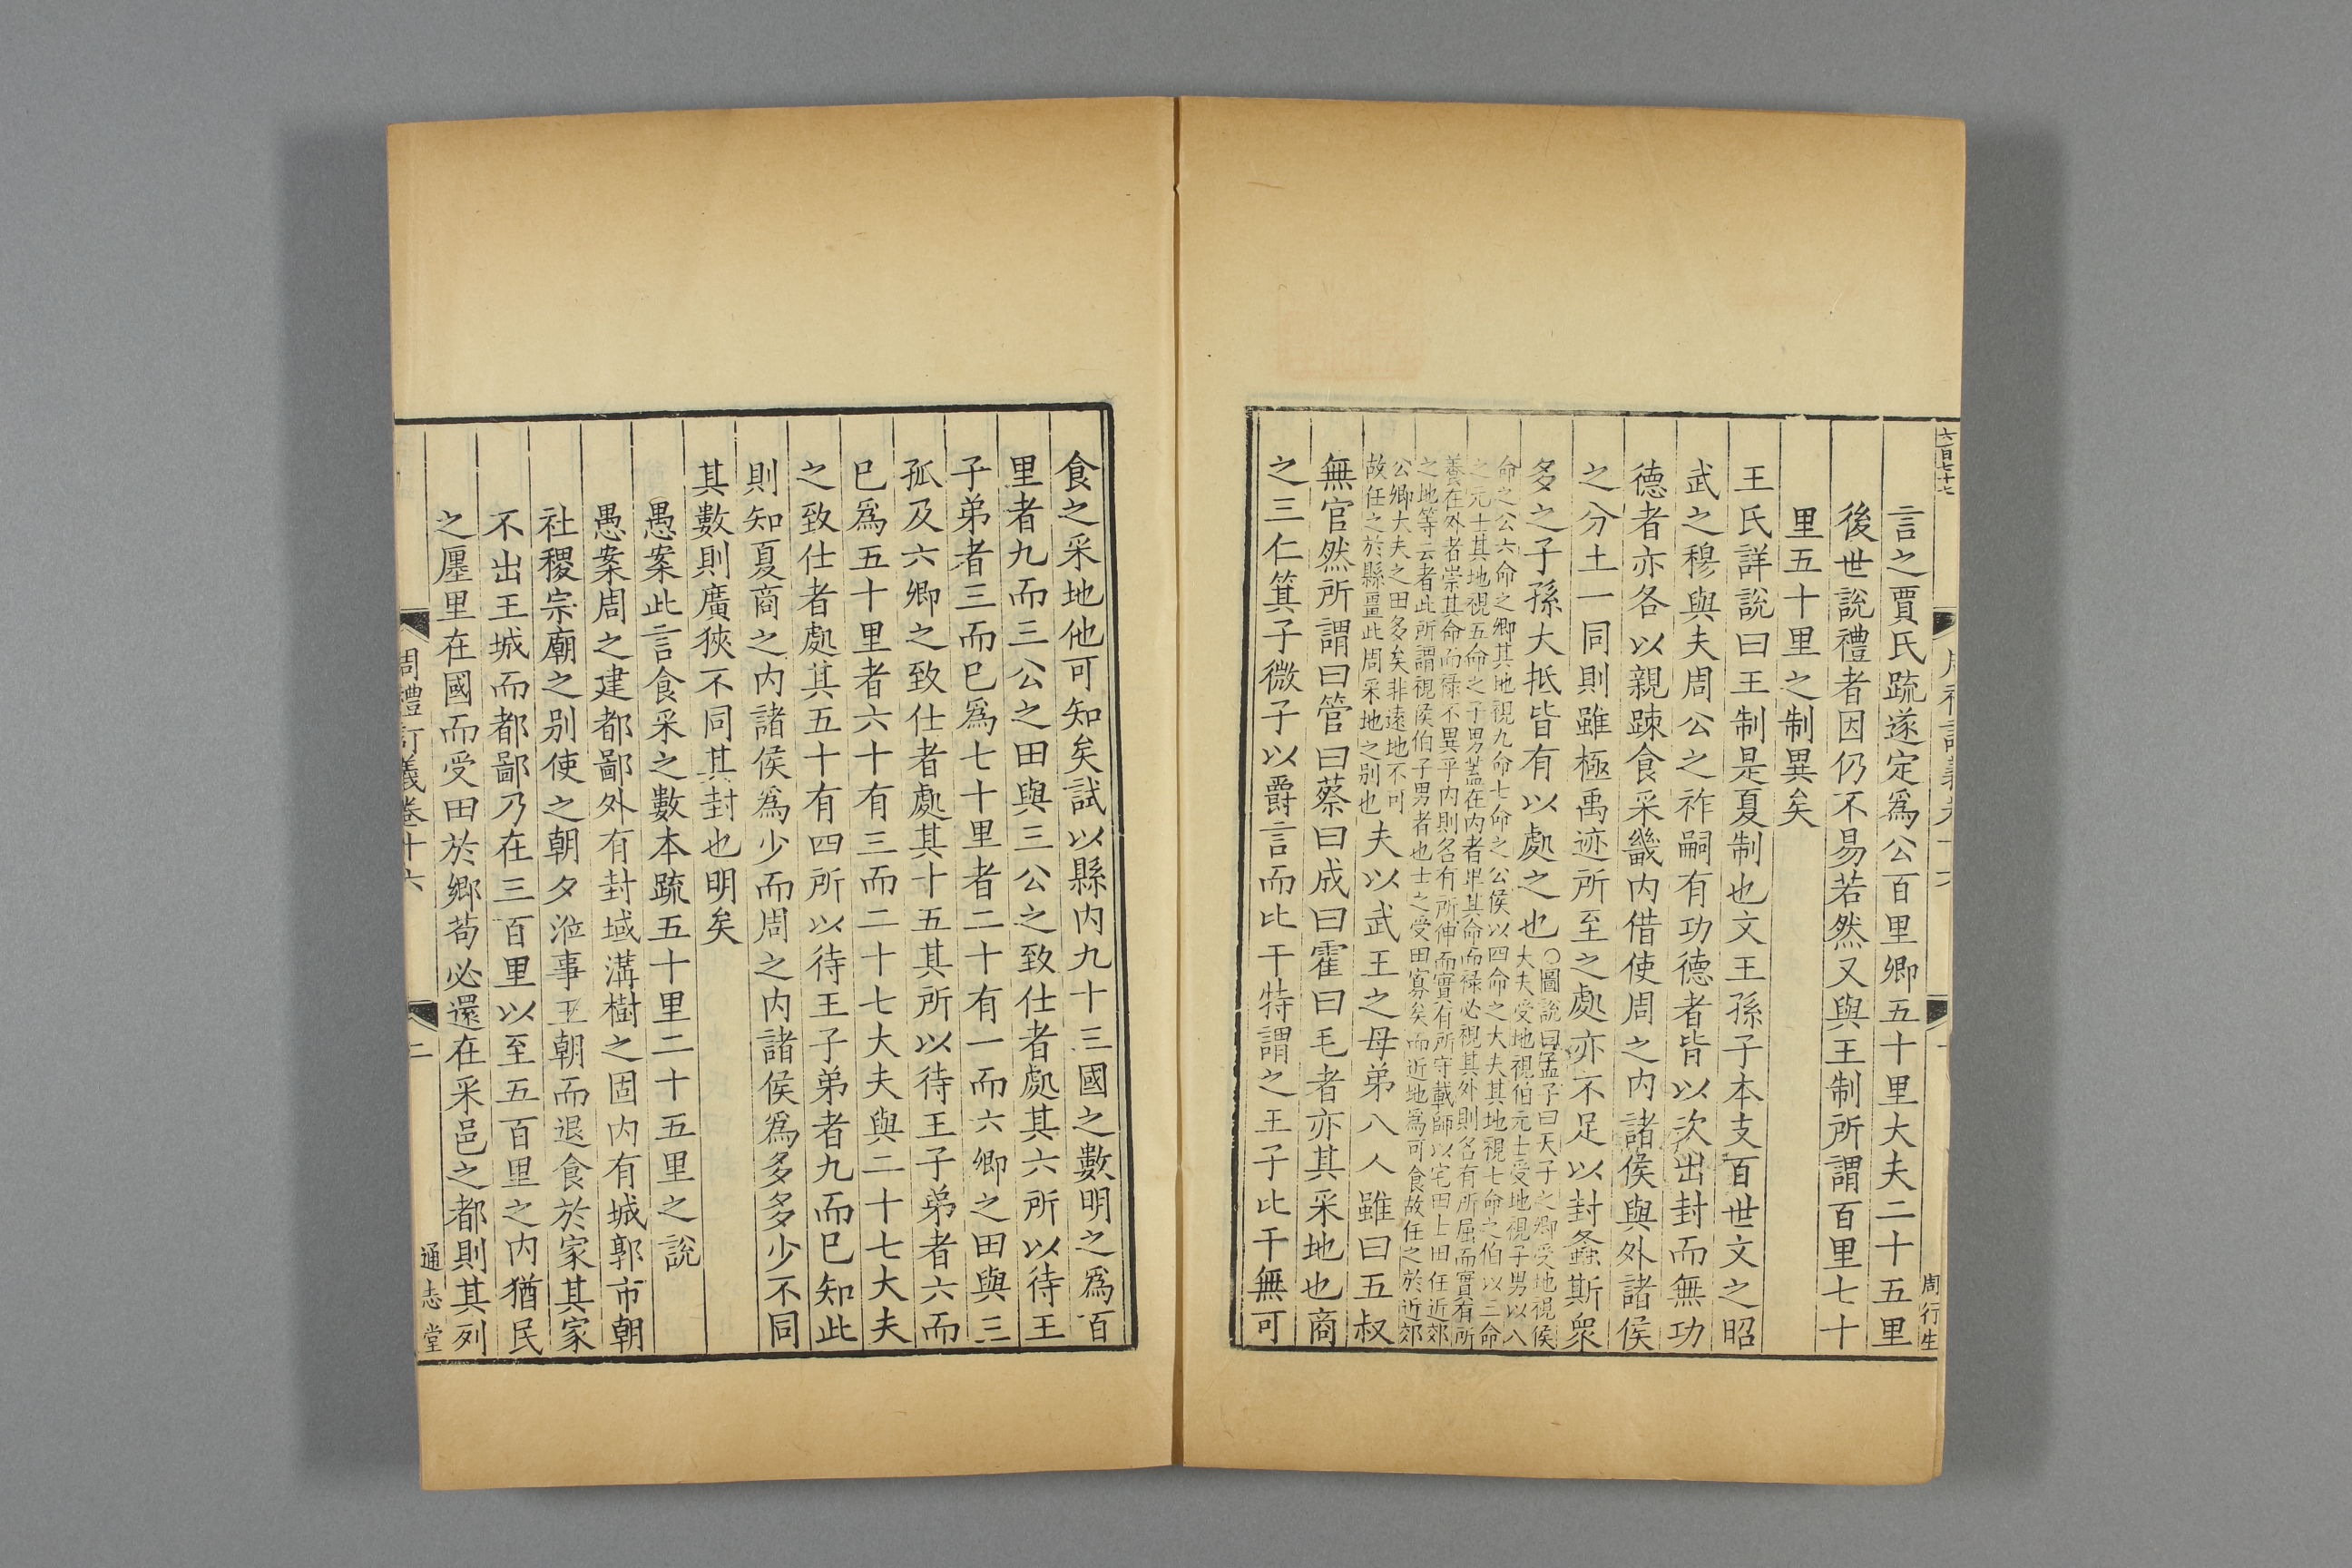 六百七十七
周行生
言之賈氏疏遂定爲公百里卿五十里大夫二十五里
後世說禮者因仍不易若然又與王制所謂百里七十
里五十里之制異矣
王氏詳說曰王制是夏制也文王孫子本支百世文之昭
武之穆與夫周公之祚嗣有功德者皆以次出封而無功
德者亦各以親踈食采畿内借使周之内諸侯與外諸侯
之分土一同則雖極禹迹所至之處亦不足以封螽斯衆
多之子孫大抵皆有以處之也○圖說曰孟子曰天子之卿受地視侯
大夫受地視伯元士受地視子男以八
命之公六命之卿其地視九命七命之公侯以四命之大夫其地視七命之伯以三命
之元士其地視五命之子男蓋在内者卑其命而祿必視其外則名有所屈而實有所
養在外者崇其命而祿不異乎内則名有所伸而實有所守載師以宅田士田任近郊
之地等云者此所謂視侯伯子男者也士之受田寡矣而近地爲可食故任之於近郊
公卿大夫之田多矣非遠地不可
故任之於縣畺此周采地之别也夫以武王之母弟八人雖曰五叔
無官然所謂曰管曰蔡曰成曰霍曰毛者亦其采地也商
之三仁箕子微子以爵言而比干特謂之王子比干無可
食之采地他可知矣試以縣内九十三國之數明之爲百
里者九而三公之田與三公之致仕者處其六所以待王
子弟者三而已爲七十里者二十有一而六卿之田與三
孤及六卿之致仕者處其十五其所以待王子弟者六而
已爲五十里者六十有三而二十七大夫與二十七大夫
之致仕者處其五十有四所以待王子弟者九而已知此
則知夏商之内諸侯爲少而周之内諸侯爲多多少不同
其數則廣狹不同其封也明矣
愚案此言食采之數本疏五十里二十五里之說
愚案周之建都鄙外有封域溝樹之固内有城郭市朝
社稷宗廟之别使之朝夕涖事王朝而退食於家其家
不出王城而都鄙乃在三百里以至五百里之内猶民
之廛里在國而受田於鄉苟必還在采邑之都則其列
周禮訂義卷十六
二
通志堂